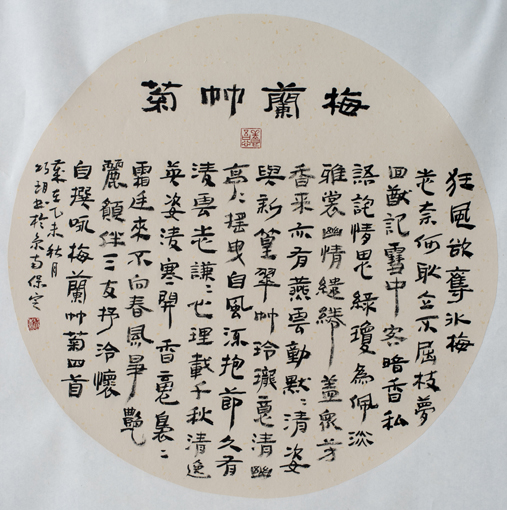 梅蘭竹菊
狂風欲奪冰梅
老奈何耿立不屈枝夢
回猷記雪中客暗香私
語說情思綠瓊為佩淡
雅裳幽情繾綣蓋眾芳
香來亦有燕雲動默〻清姿
與新篁翠竹玲瓏意清幽
亭〻搖曳自風流抱節久有
淩雲志謙〻世理載千秋清逸
英姿凌寒開香裊〻
霜廷來不向春風爭艷
麗顏伴三友抒冷懷
自撰咏梅蘭竹菊四首
歲在乙未秋月
書於京南保定